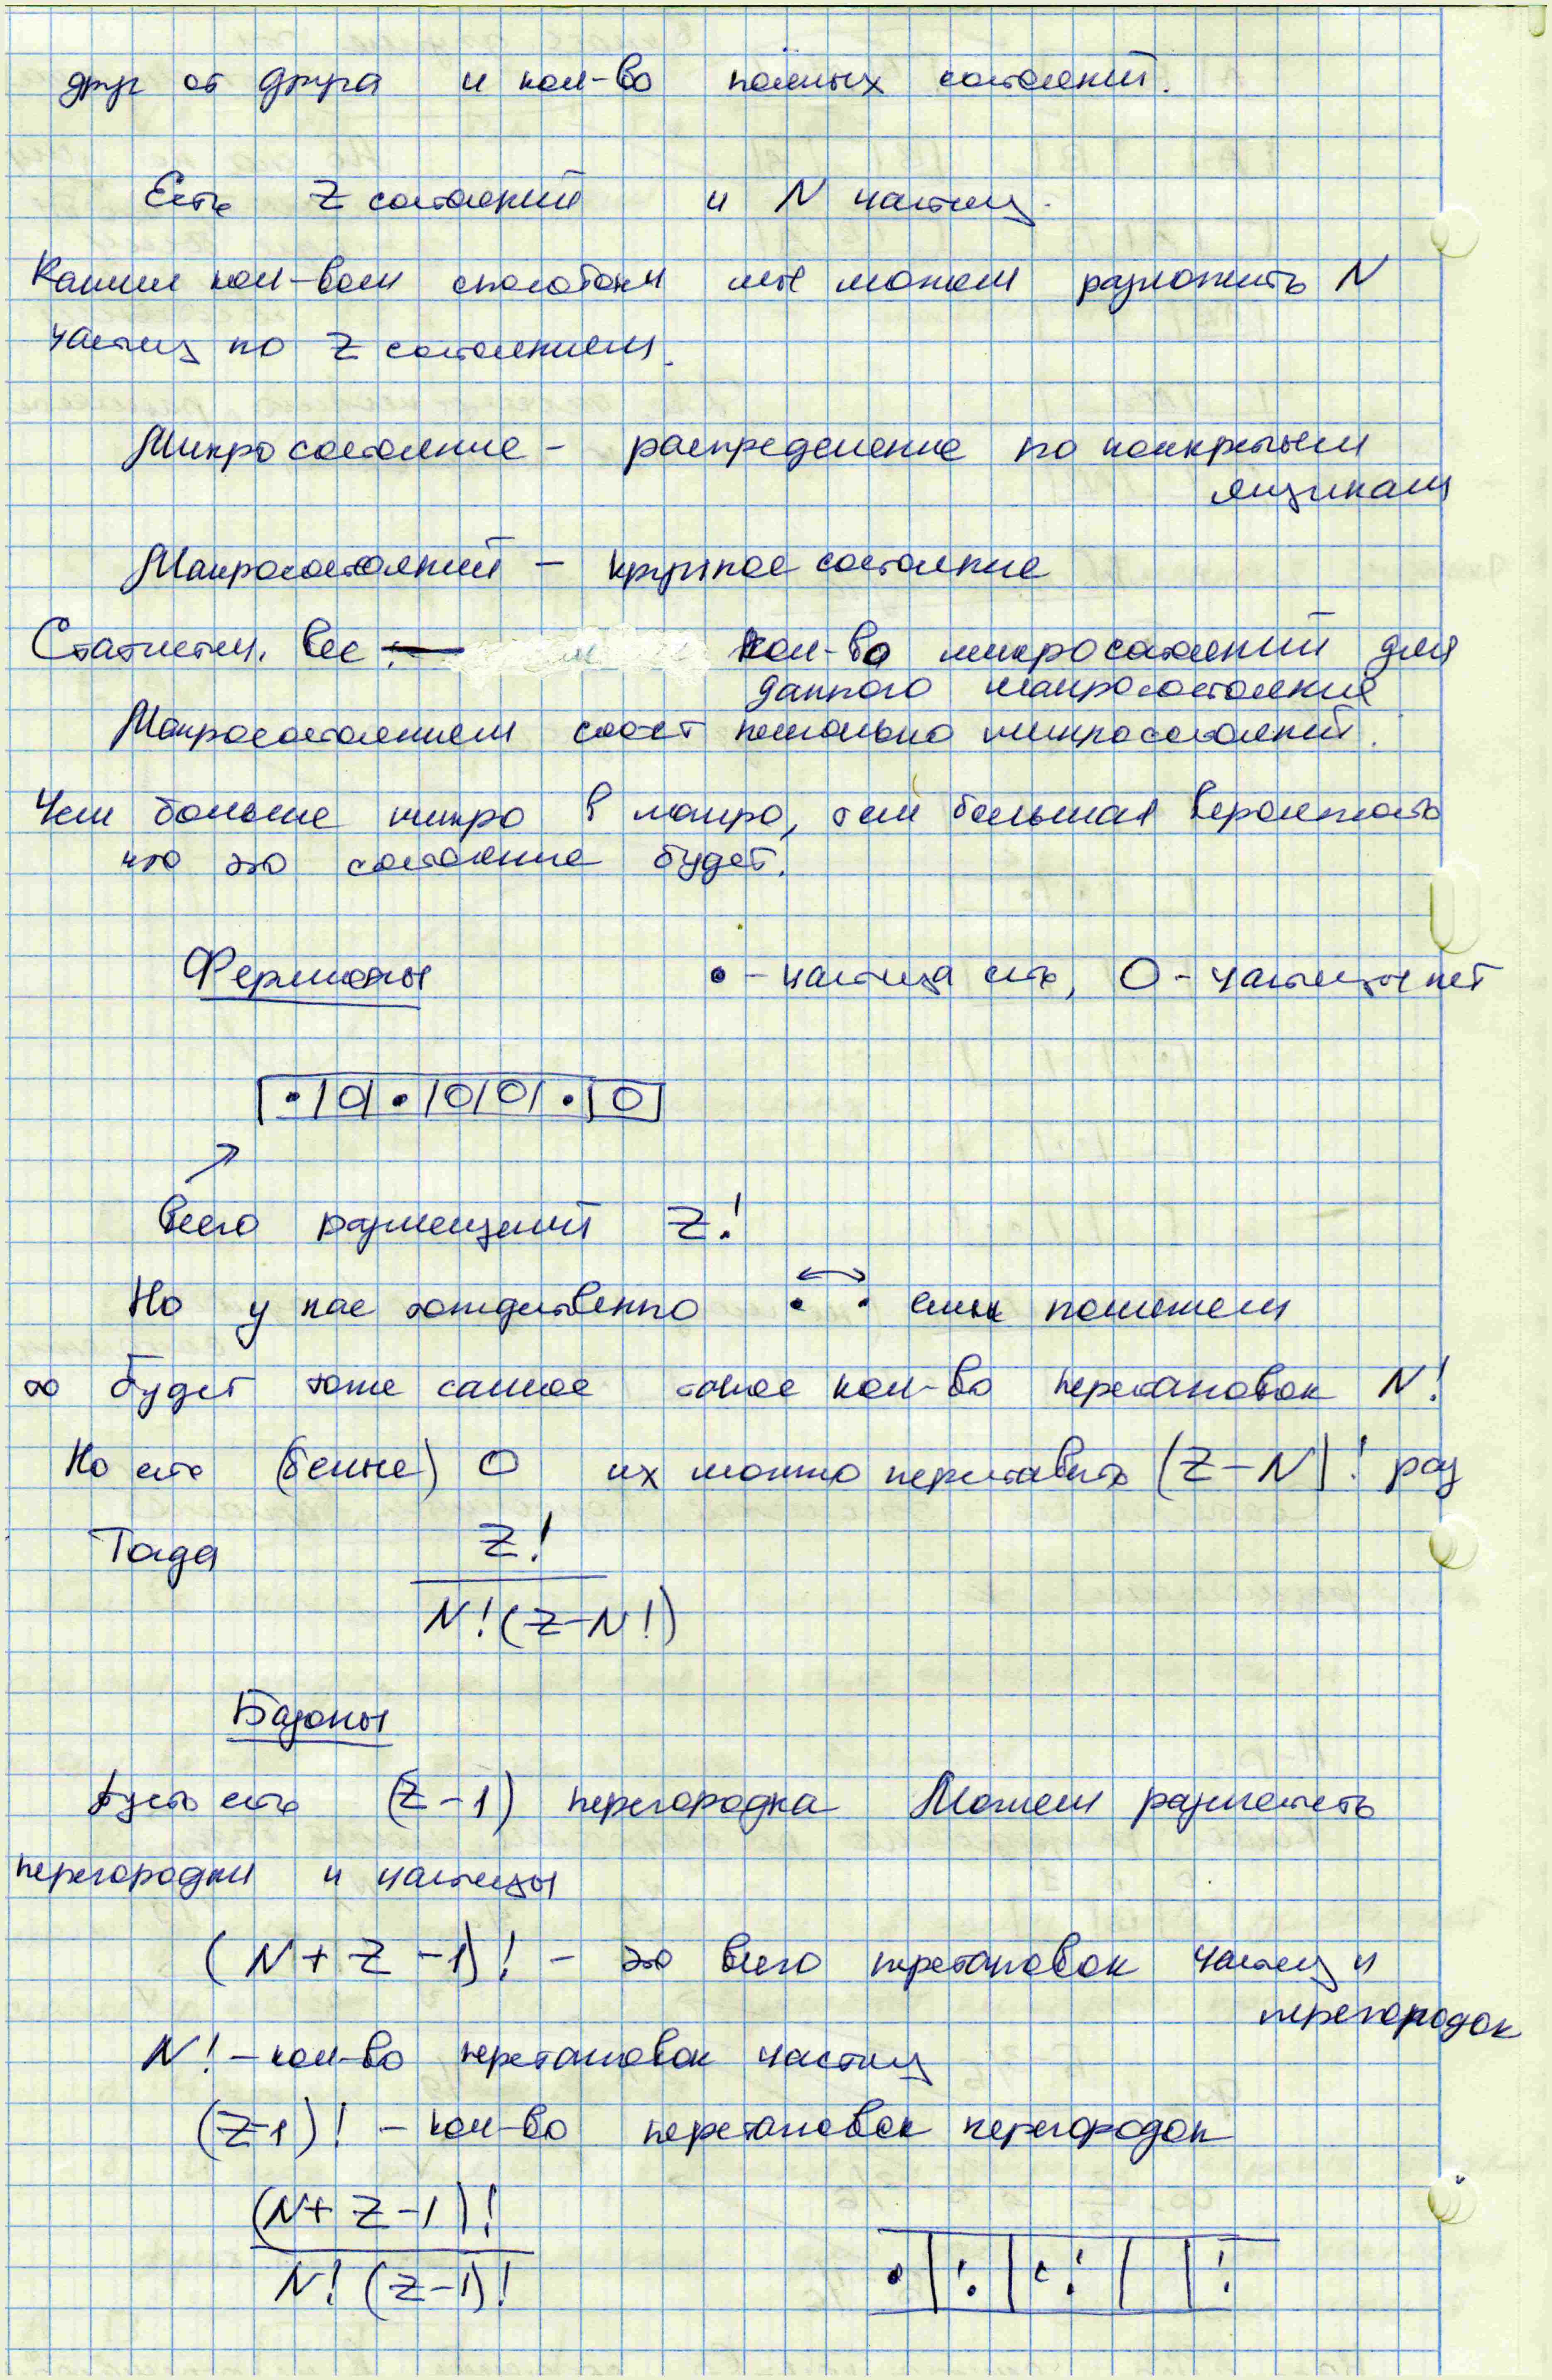 друг от друга и кол-во полных состояний.
Есть Z состояний и N частиц.
Каким кол-вом способами мы можем разложить N
частиц по Z состояниям.
Микросостояние - распределение по конкретным
ящикам
Макросостояний - крупное состояние
Статистич. вес кол-во микросостояний для
данного макросостояния
Макросостоянием соот несколько микросостояний.
Чем больше микро в макро, тем большая вероятность
что это состояние будет.
Фермионы • - частица есть, O - частицы нет
|•|O|•|O|O|•|O|
Всего размещений Z!
Но у нас тождественно • • если поменяем
то будет тоже самое такое кол-во перестановок N!
Но есть (белые) O их можно переставить (Z-N)! раз
Тогда Z!
N!(Z-N!)
Бозоны
Пусть есть (Z-1) перегородка Можем разместить
перегородки и частицы
(N+Z-1)! - это всего перестановок частиц и
перегородок
N! - кол-во перестановок частиц
(Z-1)! - кол-во перестановок перегородок
(N+Z-1)!
N!(Z-1)!